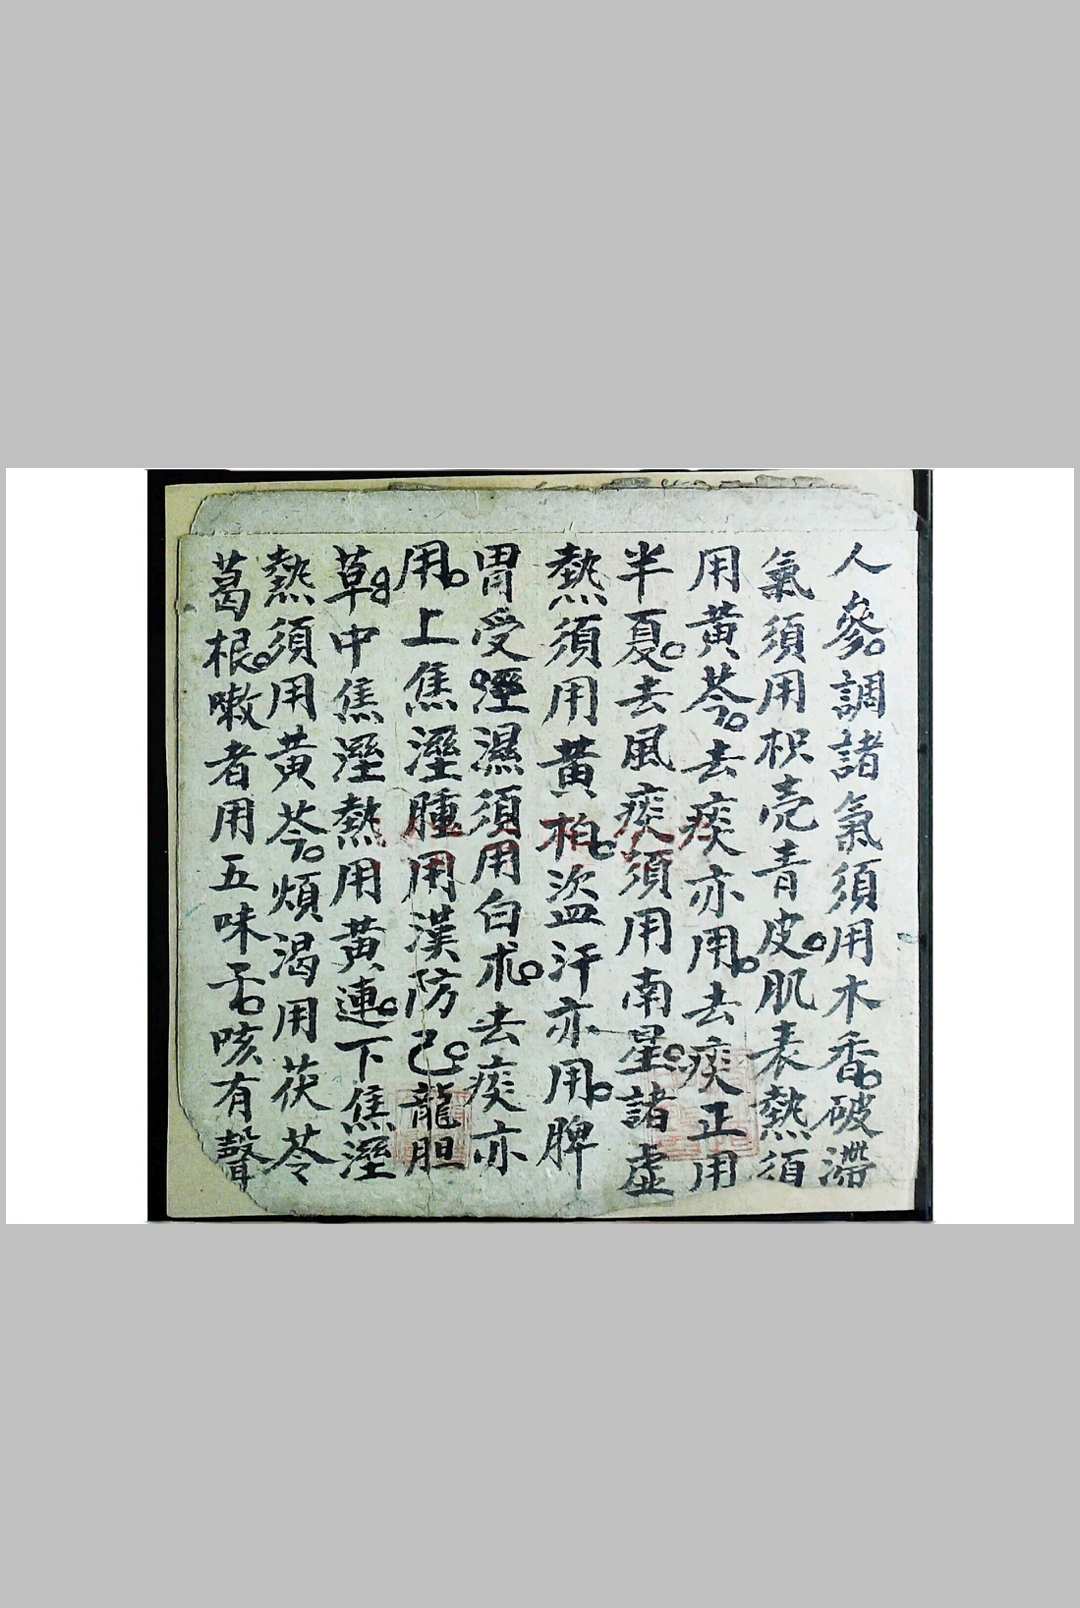 人參。調諸氣須用木香。破滯
氣須用枳壳青皮。肌表熱須
用黃芩。去痰亦用。去痰正用
半夏。去風痰須用南星。諸虛
熱須用黃柏。盜汗亦用。脾
胃受溼濕須用白朮。去痰亦
用。上焦溼腫用漢防己。龍胆
草。中焦溼熱用黃連。下焦溼
熱須用黃芩。煩渴用茯苓
葛根。嗽者用五味子。咳有聲